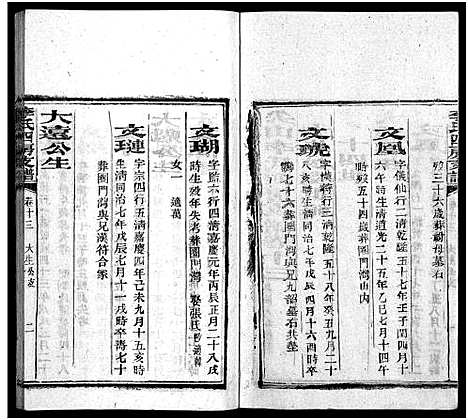 李氏四房支譜
歿三十六歲葬祔母墓右
文鳳
字儀仙行一清乾隆五十七年壬子閏四月十
六午時生清道光二十五年乙巳七月十四午
時歿五十四歲葬圈門灣山內
文琥
字漢符行三清乾隆五十八年癸丑九月二十
八亥時生清同治七年戊辰四月十六酉時卒
七十六葬圈門灣與兄九韶墓石共壘
文瑚
字監六行四清嘉慶元年丙辰正月二十八戌
時生歿年失考葬圈門灣 娶張氏
女一 適萬
文璉
字宗四行五清嘉慶四年己未九月十五亥時
生清同治七年戊辰七月十一戌時卒壽七十
葬圈門灣與兄漢符合冢
大遠公生
李氏四房支譜
卷十三 大生公支
二